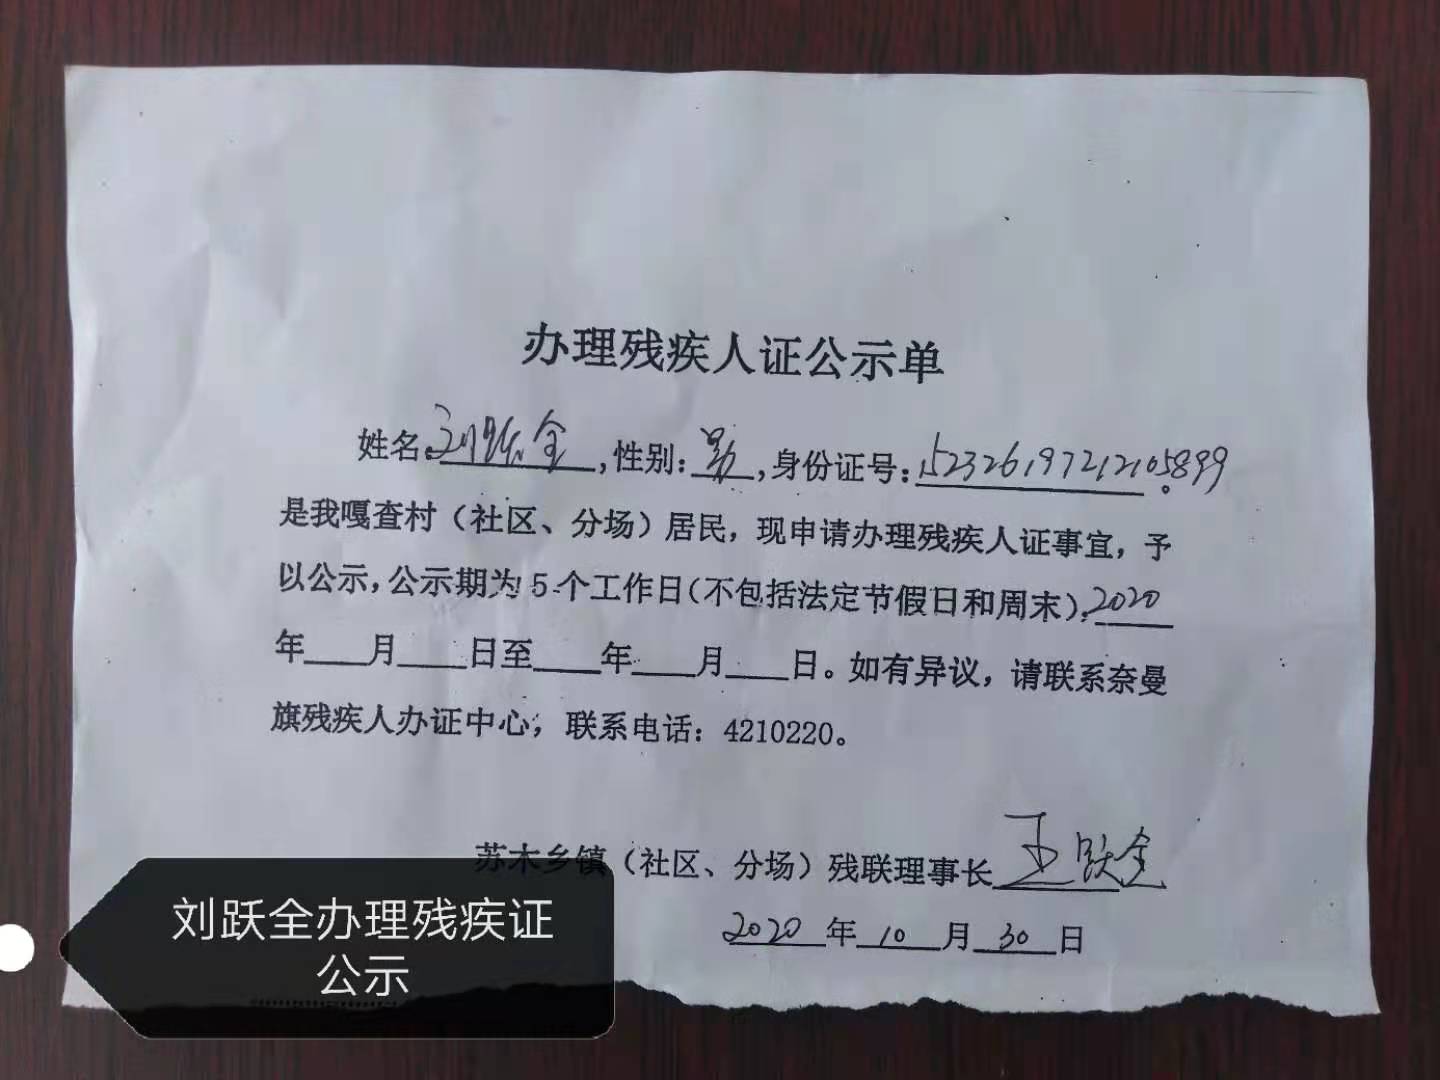 办理残疾人证公示单
姓名:刘跃全,性别:男,身份证号:152326197212105899。
是我嘎查村（社区、分场）居民，现申请办理残疾人证事宜，予
以公示，公示期为5个工作日(不包括法定节假日和周末),2020
年____月____日至____年____月____日。如有异议，请联系奈曼
旗残疾人办证中心，联系电话：4210220。
苏木乡镇（社区、分场）残联理事长王跃全
2020年10月30日
刘跃全办理残疾证
公示